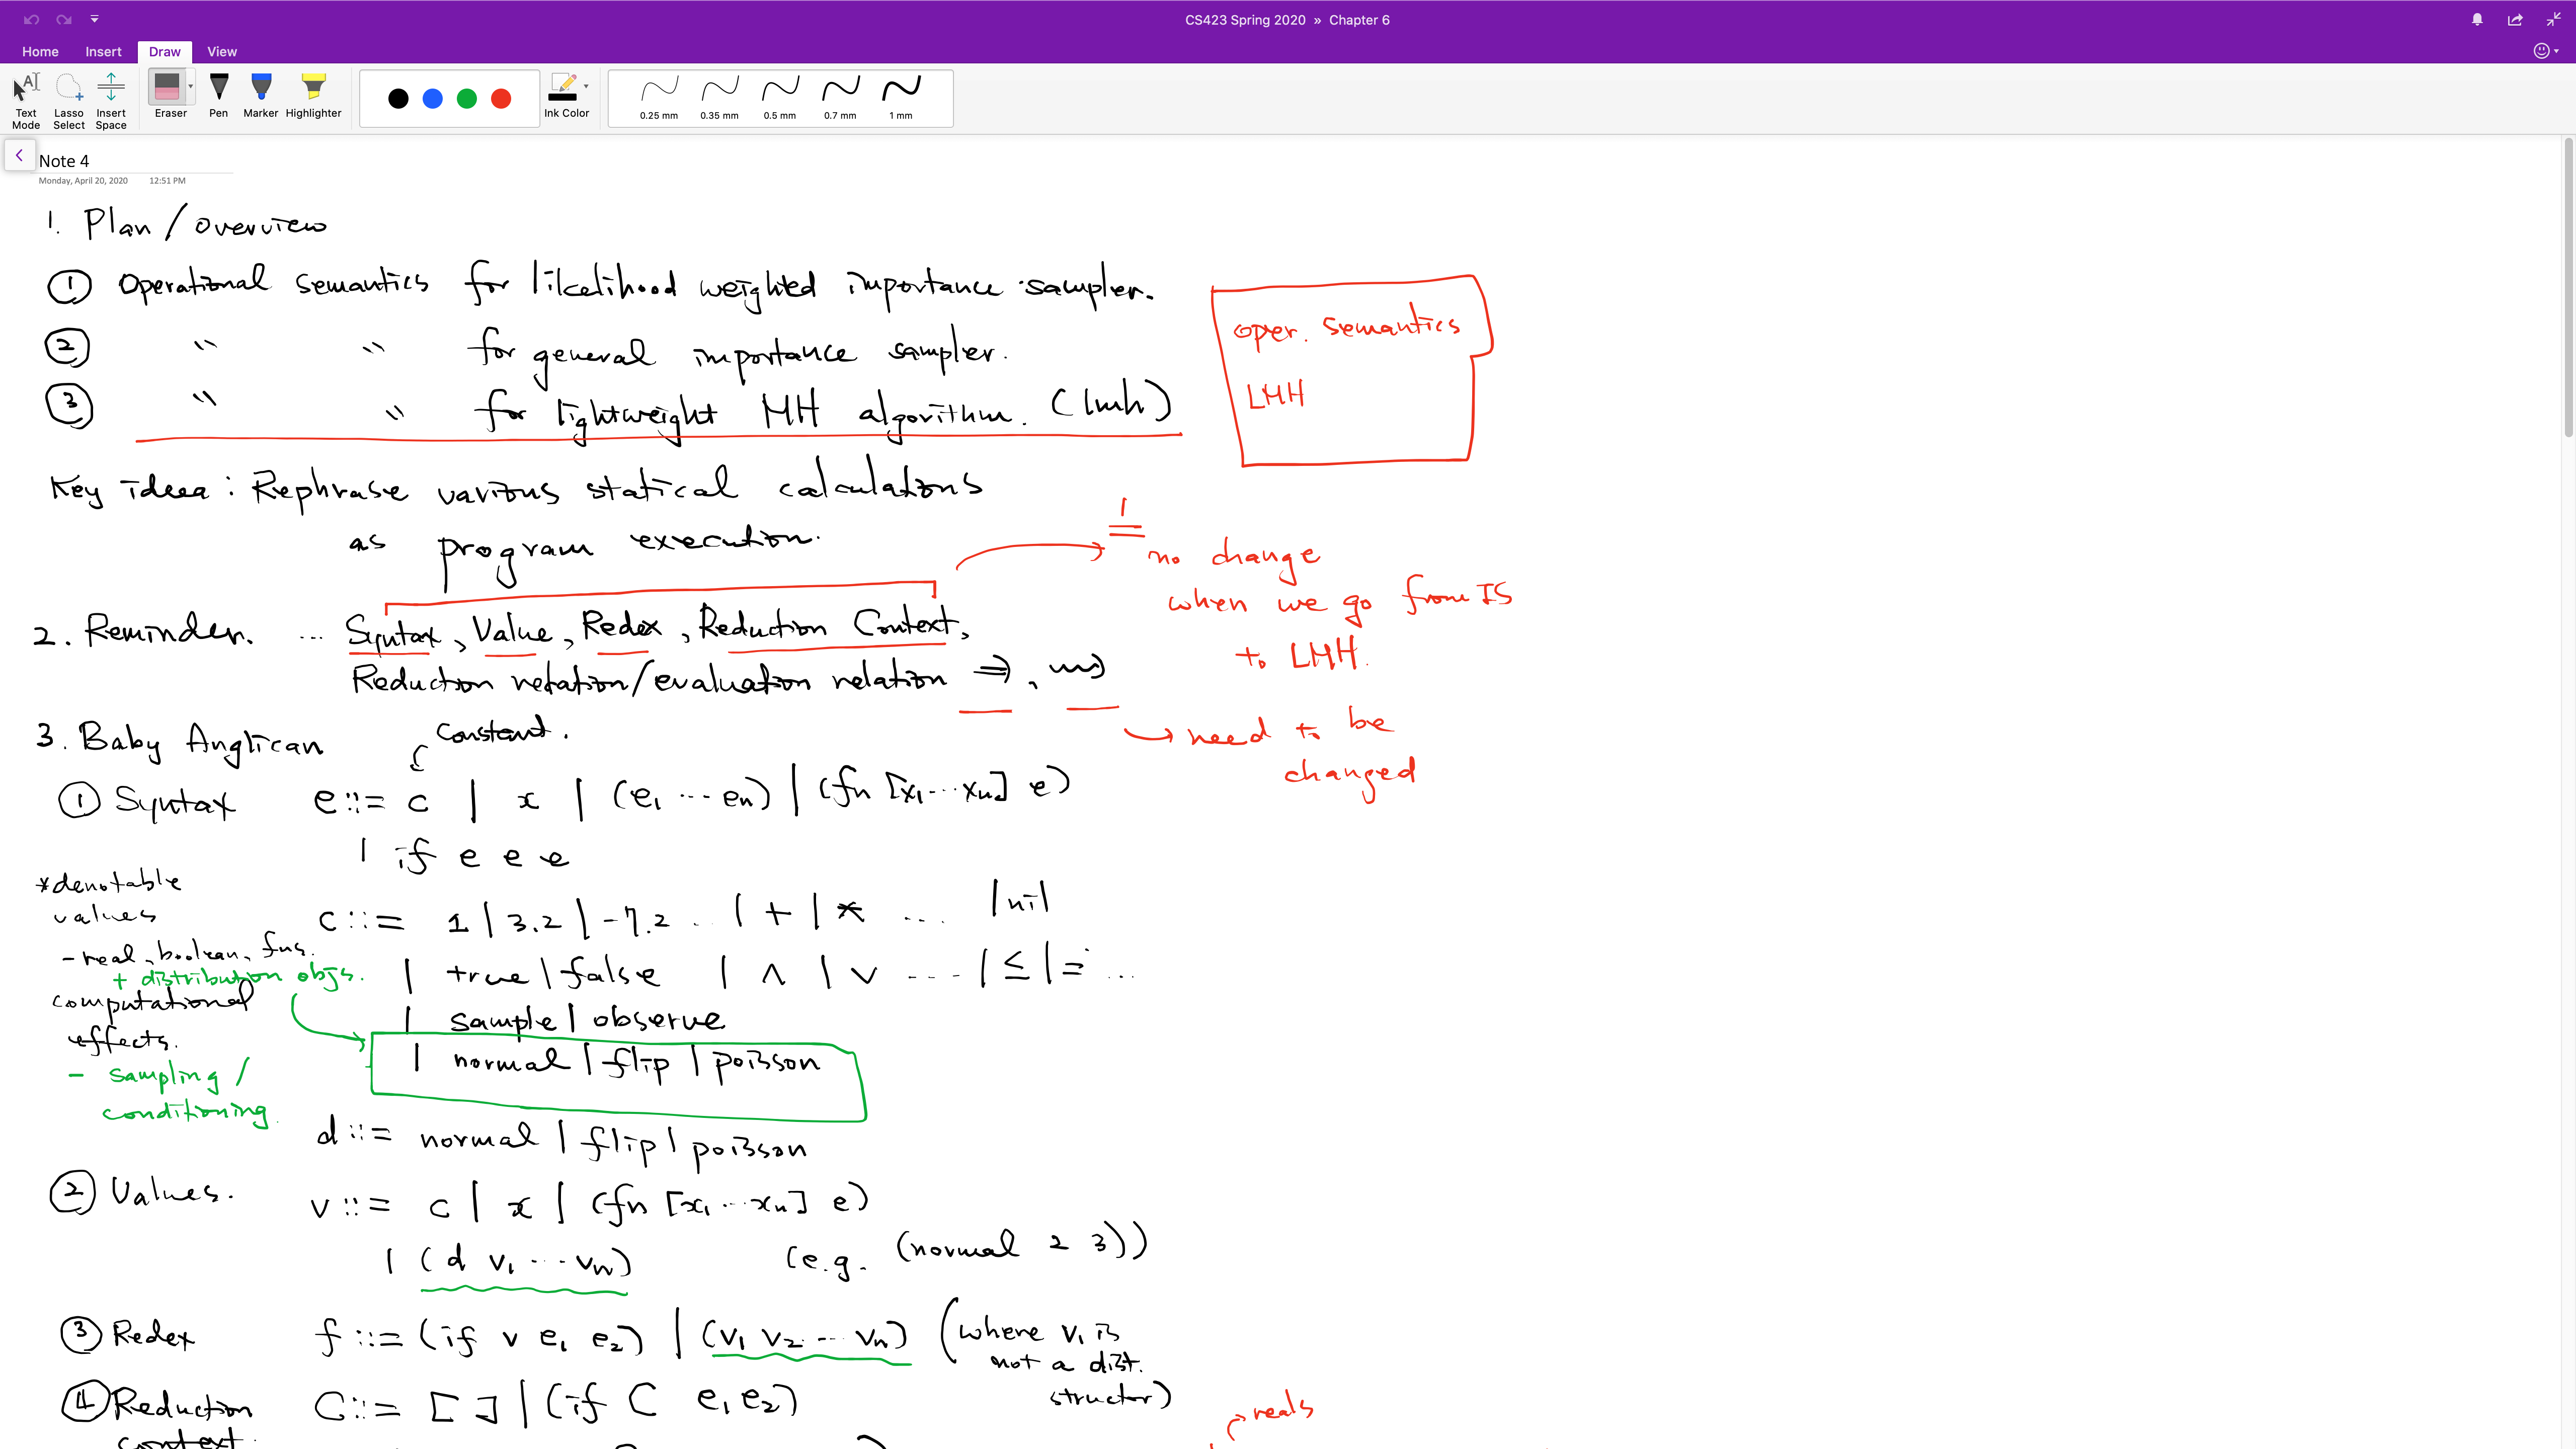 CS423 Spring 2020 » Chapter 6
Home Insert Draw View
Text Mode
Lasso Select
Insert Space
Eraser
Pen
Marker
Highlighter
Ink Color
0.25 mm
0.35 mm
0.5 mm
0.7 mm
1 mm
Note 4
Monday, April 20, 2020 12:51 PM
1. Plan / overview
① Operational semantics for likelihood weighted importance sampler.
② " " for general importance sampler.
③ " " for lightweight MH algorithm. (lmh)
oper. semantics
LMH
Key idea : Rephrase various statical calculations
as program execution.
1
no change
when we go from IS
to LMH.
2. Reminder. ... Syntax, Value, Redex, Reduction Context,
Reduction relation/evaluation relation ⇒, ⇝
need to be
changed
3. Baby Anglican
constant.
① Syntax e ::= c | x | (e₁ ... eₙ) | (fn [x₁...xₙ] e)
| if e e e
*denotable
values
- real, boolean, fns.
+ distribution objs.
computational
effects.
- sampling /
conditioning
c ::= 1 | 3.2 | -7.2 ... | + | * ... | nil
| true | false | ∧ | ∨ ... | ≤ | = ...
| sample | observe
| normal | flip | poisson
d ::= normal | flip | poisson
② Values. v ::= c | x | (fn [x₁...xₙ] e)
| (d v₁ ... vₙ) (e.g. (normal 2 3))
③ Redex f ::= (if v e₁ e₂) | (v₁ v₂ ... vₙ) (where v₁ is
not a dist.
structor)
④ Reduction C ::= [ ] | (if C e₁ e₂)
context.
reals